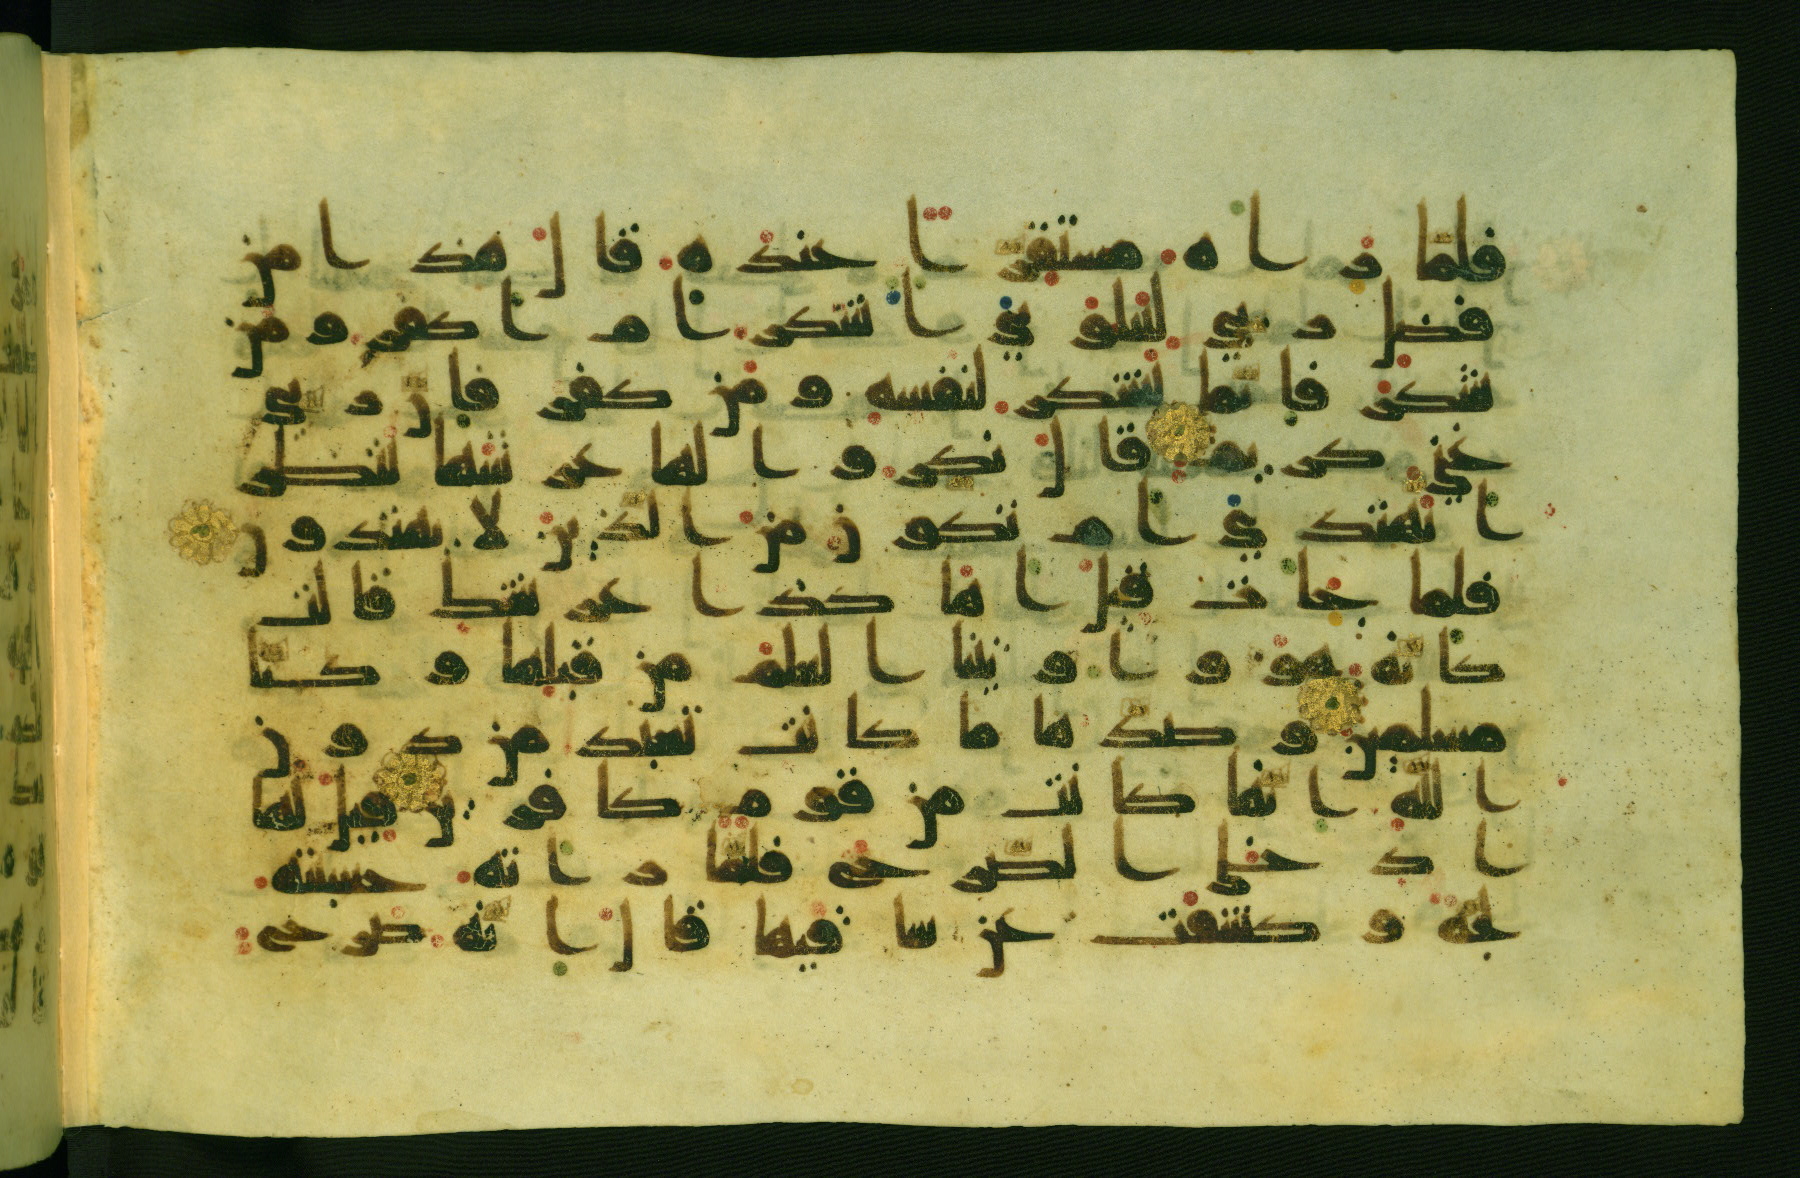 فلما راه مستقرا عنده قال هذا من
فضل ربي ليبلوني اشكر ام اكفر ومن
شكر فانما يشكر لنفسه ومن كفر فان ربي
غني كريم قال نكروا لها عرشها ننظر
اتهتدي ام تكون من الذين لا يهتدون
فلما جات قيل اهكذا عرشك قالت
كانه هو واوتينا العلم من قبلها وكنا
مسلمين وصدها ما كانت تعبد من دون
الله انها كانت من قوم كافرين قيل لها
ادخلي الصرح فلما راته حسبته
لجة وكشفت عن ساقيها قال انه صرح